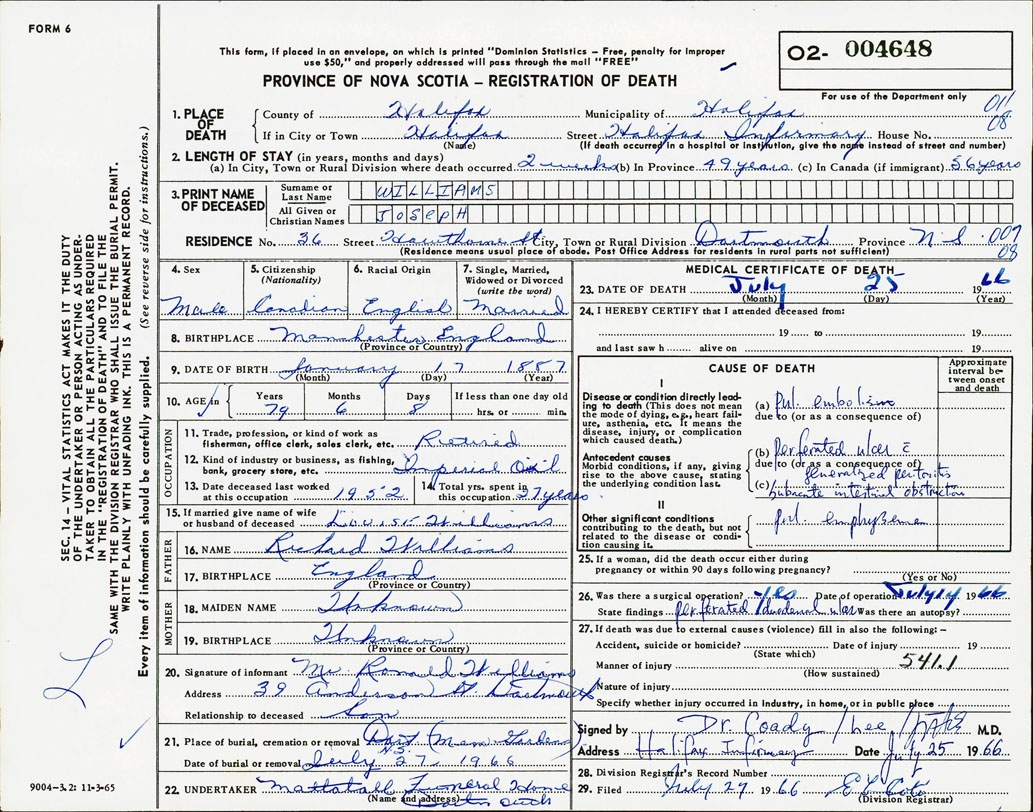 FORM 6
This form, if placed in an envelope, on which is printed "Dominion Statistics – Free, penalty for improper
use $50," and properly addressed will pass through the mail "FREE"
O2- 004648
PROVINCE OF NOVA SCOTIA – REGISTRATION OF DEATH
For use of the Department only
011
08
1. PLACE OF DEATH
County of Halifax Municipality of Halifax
If in City or Town Halifax Street Halifax Infirmary House No.
(Name) (If death occurred in a hospital or institution, give the name instead of street and number)
2. LENGTH OF STAY (in years, months and days)
(a) In City, Town or Rural Division where death occurred 2 weeks (b) In Province 49 years (c) In Canada (if immigrant) 56 years
3. PRINT NAME OF DECEASED
Surname or Last Name WILLIAMS
All Given or Christian Names JOSEPH
RESIDENCE No. 36 Street Hawthorne St City, Town or Rural Division Dartmouth Province N.S. 009
08
(Residence means usual place of abode. Post Office Address for residents in rural parts not sufficient)
4. Sex
Male
5. Citizenship
(Nationality)
Canadian
6. Racial Origin
English
7. Single, Married,
Widowed or Divorced
(write the word)
Married
8. BIRTHPLACE Manchester England
(Province or Country)
9. DATE OF BIRTH January 17 1887
(Month) (Day) (Year)
10. AGE in
Years 79
Months 6
Days 8
If less than one day old
hrs. or min.
OCCUPATION
11. Trade, profession, or kind of work as
fisherman, office clerk, sales clerk, etc. Retired
12. Kind of industry or business, as fishing,
bank, grocery store, etc. Imperial Oil
13. Date deceased last worked
at this occupation 1952
14. Total yrs. spent in
this occupation 27 years
15. If married give name of wife
or husband of deceased Louise Williams
FATHER
16. NAME Richard Williams
17. BIRTHPLACE England
(Province or Country)
MOTHER
18. MAIDEN NAME Unknown
19. BIRTHPLACE Unknown
(Province or Country)
20. Signature of informant Mr. Ronald Williams
Address 39 Anderson St Dartmouth
Relationship to deceased Son
21. Place of burial, cremation or removal Dart. Mem. Gardens
N.S.
Date of burial or removal July 27 1966
22. UNDERTAKER Mattatall Funeral Home
(Name and address) Dartmouth
MEDICAL CERTIFICATE OF DEATH
23. DATE OF DEATH July 25 1966
(Month) (Day) (Year)
24. I HEREBY CERTIFY that I attended deceased from:
19 to 19
and last saw h alive on 19
CAUSE OF DEATH
Approximate
interval be-
tween onset
and death
I
Disease or condition directly lead-
ing to death (This does not mean
the mode of dying, e.g., heart fail-
ure, asthenia, etc. It means the
disease, injury, or complication
which caused death.)
(a) Pul. embolism
due to (or as a consequence of)
Antecedent causes
Morbid conditions, if any, giving
rise to the above cause, stating
the underlying condition last.
(b) Perforated ulcer c̄
due to (or as a consequence of)
generalized peritonitis
(c) Subacute intestinal obstruction
II
Other significant conditions
contributing to the death, but not
related to the disease or condi-
tion causing it.
Pul. emphysema
25. If a woman, did the death occur either during
pregnancy or within 90 days following pregnancy?
(Yes or No)
26. Was there a surgical operation? Yes Date of operation July 14 1966
State findings Perforated duodenal ulcer Was there an autopsy?
27. If death was due to external causes (violence) fill in also the following:–
Accident, suicide or homicide? Date of injury 19
(State which)
541.1
Manner of injury
(How sustained)
Nature of injury
Specify whether injury occurred in Industry, in home, or in public place
Signed by Dr. Coady / Lee / M.D.
Address Halifax Infirmary Date July 25 1966
28. Division Registrar's Record Number
29. Filed July 27 1966
(Division Registrar)
SEC. 14 – VITAL STATISTICS ACT MAKES IT THE DUTY
OF THE UNDERTAKER OR PERSON ACTING AS UNDER-
TAKER TO OBTAIN ALL THE PARTICULARS REQUIRED
IN THE "REGISTRATION OF DEATH" AND TO FILE THE
SAME WITH THE DIVISION REGISTRAR WHO SHALL ISSUE THE BURIAL PERMIT.
WRITE PLAINLY WITH UNFADING INK. THIS IS A PERMANENT RECORD.
Every item of information should be carefully supplied. (See reverse side for instructions.)
9004–3.2: 11-3-65